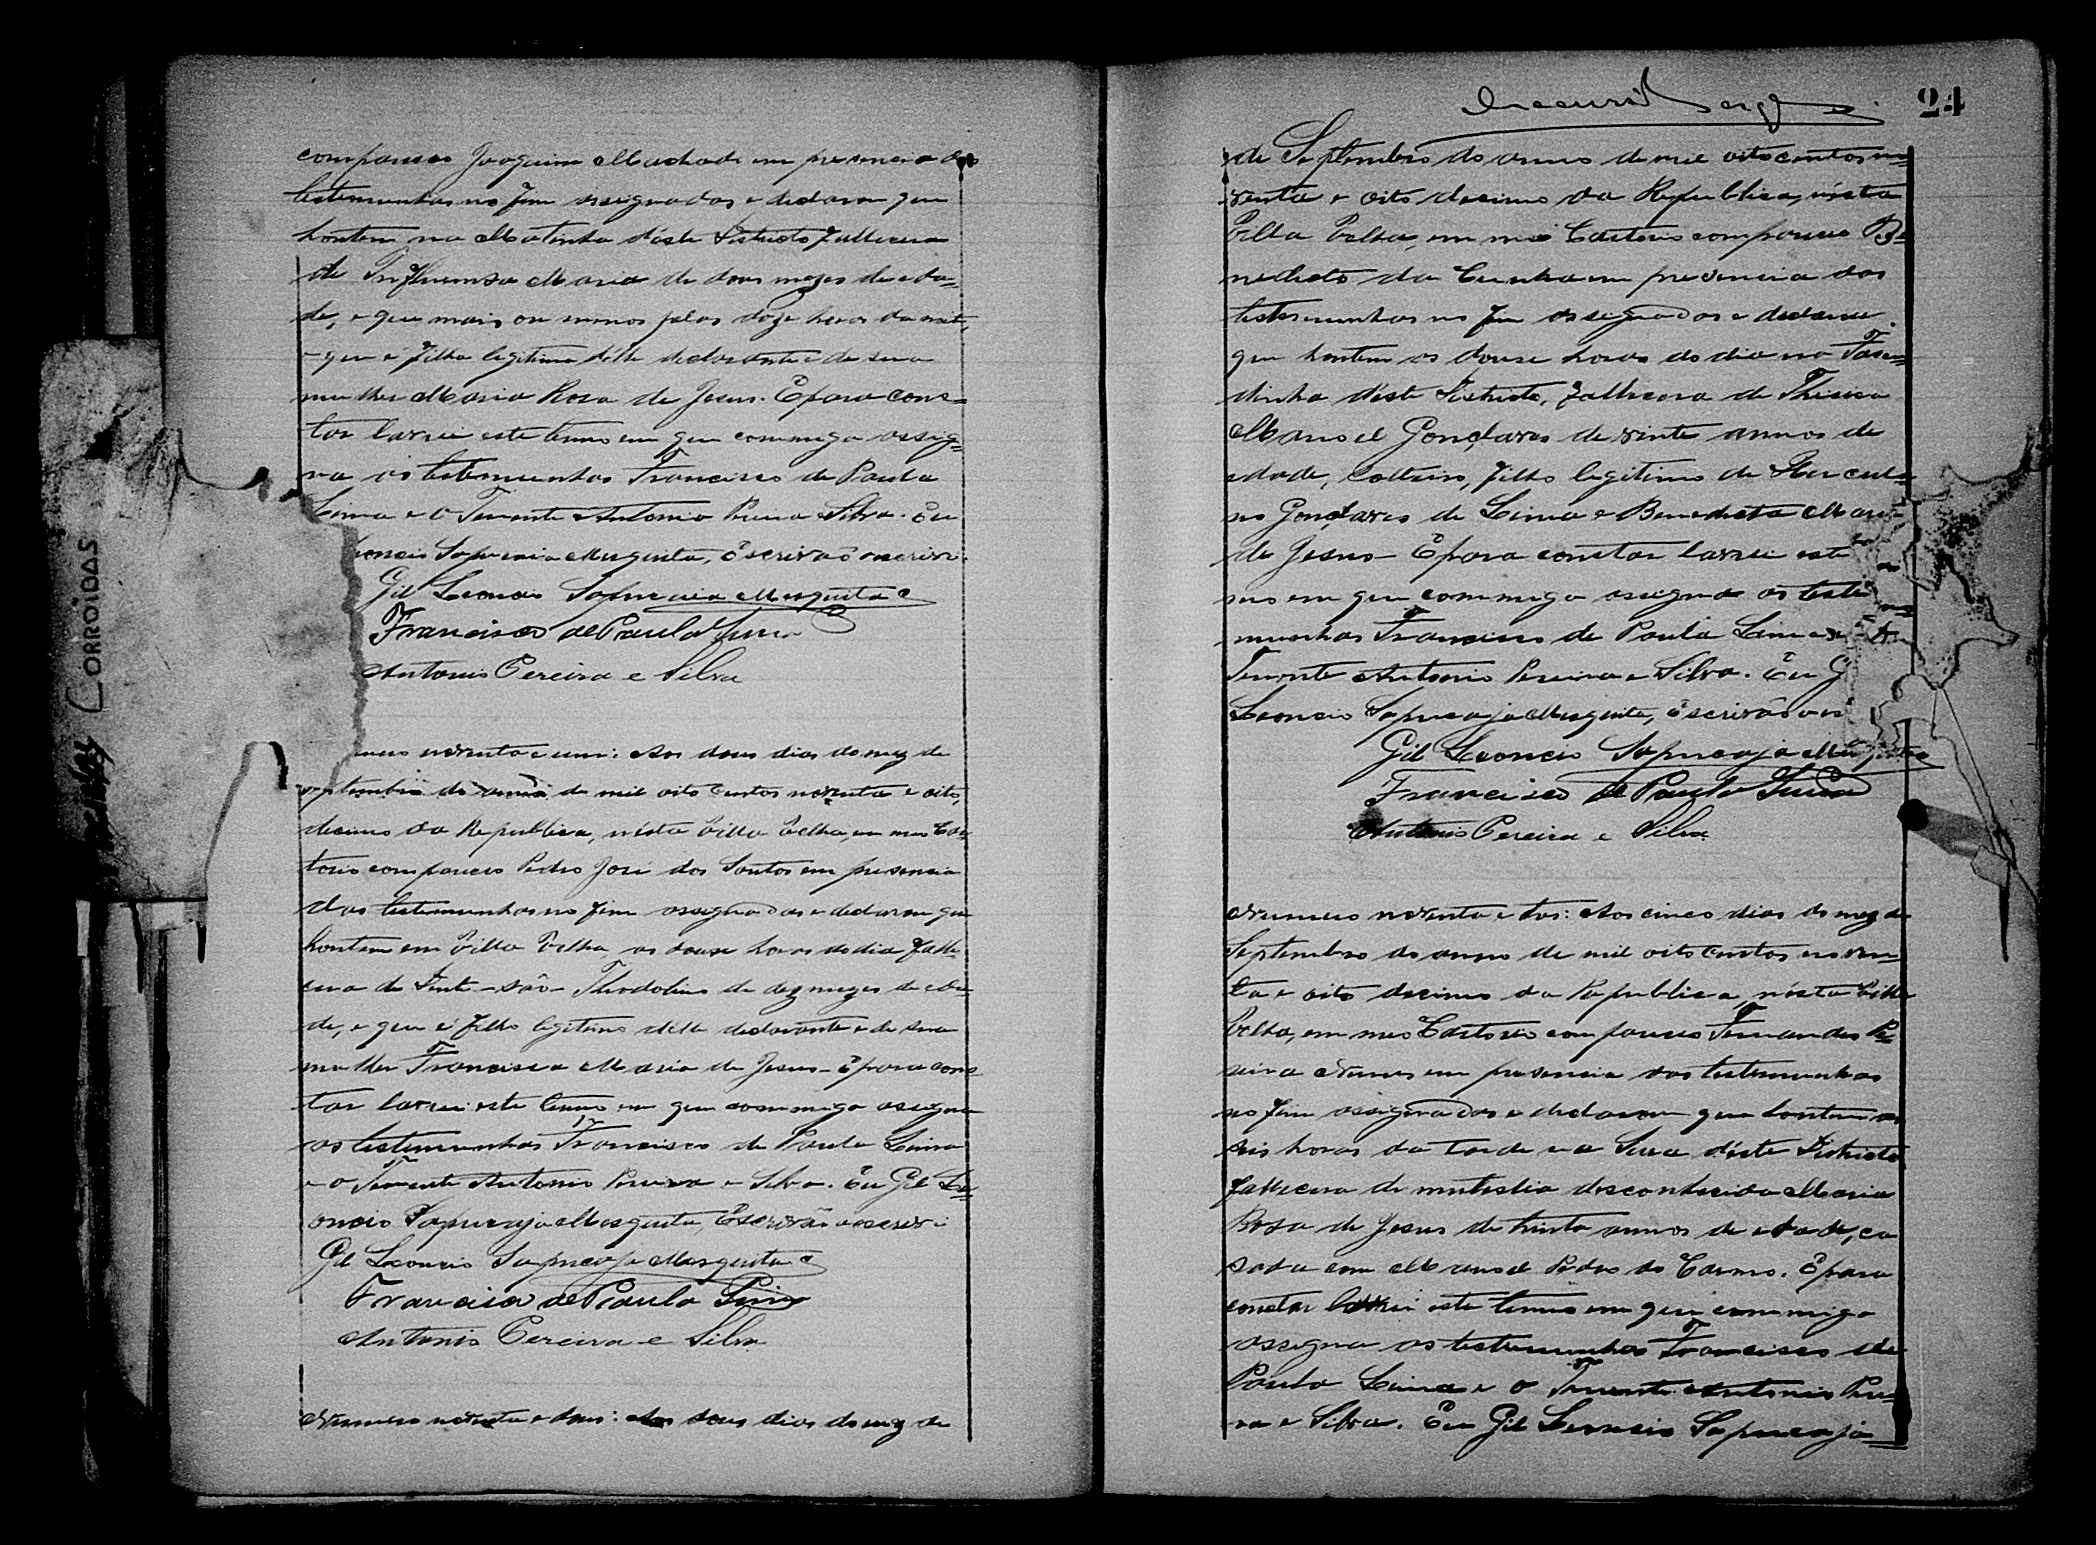 compareceu Joaquim Machado em presencia das
testemunhas no fim assignadas e declarou que
hontem na Matinha d'éste Districto falleceu
de Influensa Maria de dous mezes de eda-
de, e que mais ou menos pelas doze horas da noite,
e que é filha legitima d'élle declarante e de sua
mulher Maria Rosa de Jesus. E para cons-
tar lavrei este termo em que commigo assig-
na as testemunhas Francisco de Paula
Lima e o Tenente Antonio Pereira Silva. Eu
Leoncio Sapucaia Mesquita, Escrivão escrivi.
Gil Leoncio Sapucaia Mesquita
Francisco de Paula Lima
Antonio Pereira e Silva
noventa e um: Aos dous dias do mez de
Septembro do anno de mil oito centos noventa e oito,
decimo da Republica, nésta Villa Velha, em meu Car-
torio compareceo Pedro José dos Santos em presencia
das testemunhas no fim assignadas e declarou que
hontem em Villa Velha, as douse horas do dia falle-
cera de Theodolino de dez mezes de eda-
de, e que é filho legitimo délle declarante e de sua
mulher Francisca Maria de Jesus - E para cons-
tar lavrei este termo em que commigo assigna
as testemunhas Francisco de Paula Lima
e o Tenente Antonio Pereira e Silva. Eu Gil Le-
oncio Sapucaja Mesquita, Escrivão escrevi
Gil Leoncio Sapucaja Mesquita
Francisco de Paula Lima
Antonio Pereira e Silva
Numero noventa e dous: Aos dous dias do mez de
24
de Septembro do anno de mil oito centos no-
venta e oito decimo da Republica, nésta
Villa Velha, em meu Cartorio compareceu Be-
nedicto da Cunha em presencia das
testemunhas no fim assignadas e declarou
que hontem as douse horas do dia na Fasen-
dinha déste Districto, fallecera de
Manoel Gonçalves de vinte annos de
edade, solteiro, filho legitimo de Hercul-
no Gonçalves de Lima e Benedicta Maria
de Jesus - E para constar lavrei este
mo em que commigo assigna as teste
munhas Francisco de Paula Lima e
Tenente Antonio Pereira e Silva. Eu G
Leoncio Sapucaja Mesquita, Escrivão
Gil Leoncio Sapucaja Mesquita
Francisco de Paula Lima
Antonio Pereira e Silva
Numero noventa e tres: Aos cinco dias do mez de
Septembro do anno de mil oito centos noven-
ta e oito decimo da Republica, nésta Villa
Velha, em meu Cartorio compareceo Fernandes Pe-
reira Nunes em presencia das testemunhas
no fim assignadas e declarou que hontem as
seis horas da tarde na Serra déste Districto
fallecera de mulestia desconhecida Maria
Rosa de Jesus de trinta annos de edade, ca
sada com Manoel Pedro do Carmo. E para
constar lavrei este termo em que commigo
assigna as testemunhas Francisco de
Paula Lima e o Tenente Antonio Perei-
ra e Silva. Eu Gil Leoncio Sapucaja
CORROÍDAS